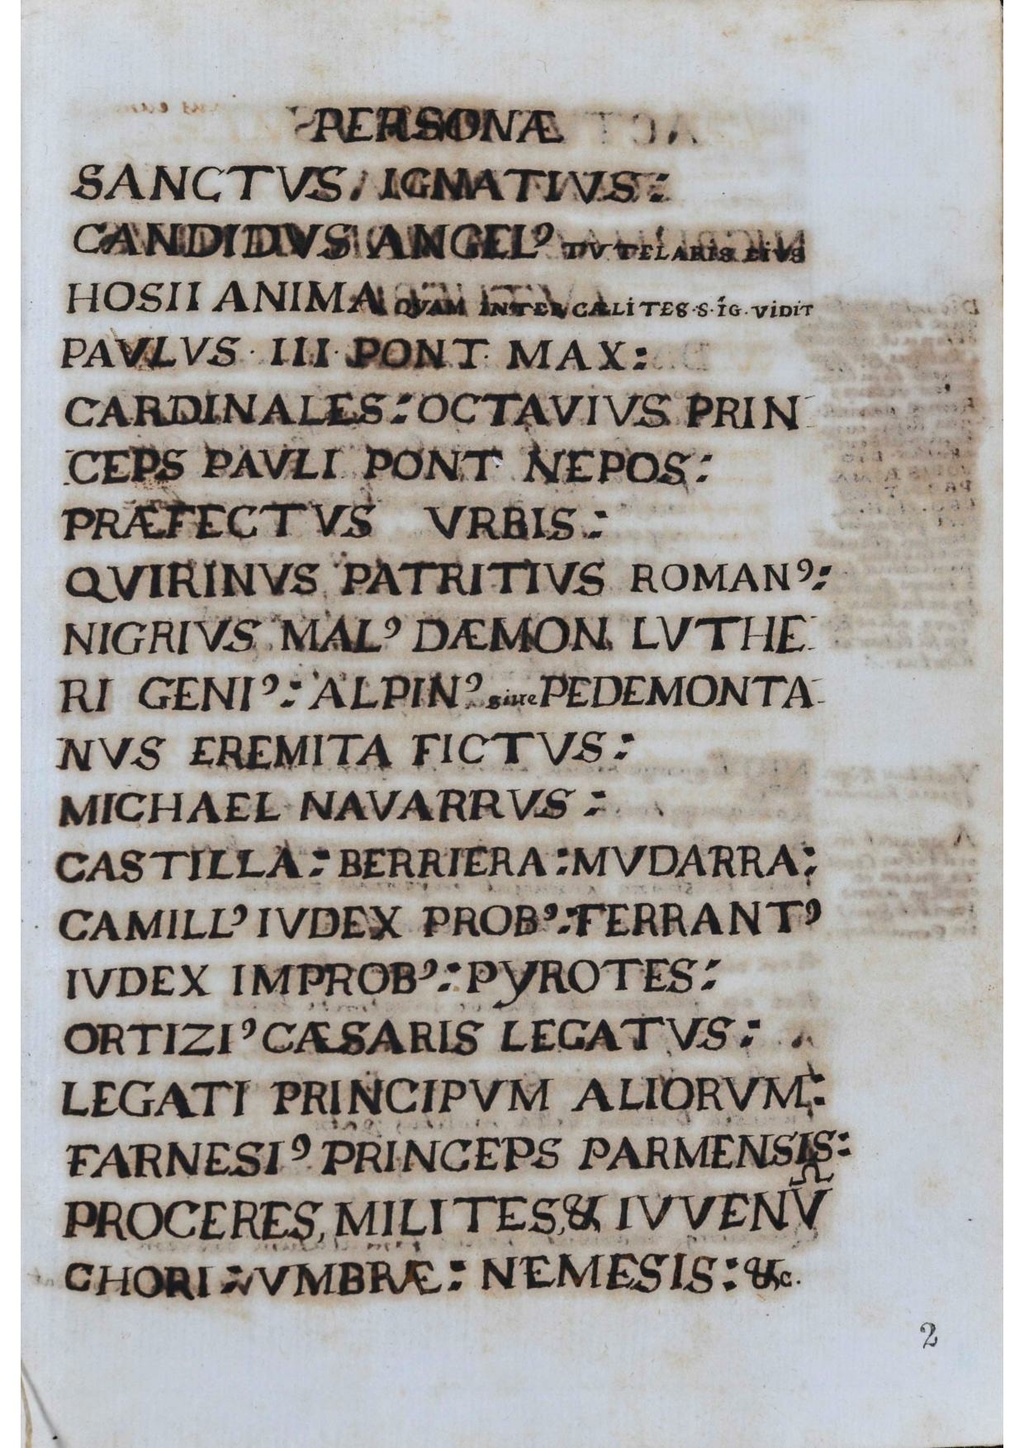 PERSONÆ
SANCTVS IGNATIVS:
CANDIDVS ANGELꝰ TVTELARIS EIVS
HOSII ANIMA QVAM INTER CÆLITES S. IG. VIDIT
PAVLVS · III · PONT MAX:
CARDINALES: OCTAVIVS PRIN
CEPS PAVLI PONT NEPOS:
PRÆFECTVS VRBIS:
QVIRINVS PATRITIVS ROMANꝰ:
NIGRIVS MALꝰ DÆMON LVTHE-
RI GENIꝰ: ALPINꝰ siue PEDEMONTA-
NVS EREMITA FICTVS:
MICHAEL NAVARRVS:
CASTILLA: BERRIERA: MVDARRA:
CAMILLꝰ IVDEX PROBꝰ: FERRANTꝰ
IVDEX IMPROBꝰ: PyROTES:
ORTIZIꝰ CÆSARIS LEGATVS:
LEGATI PRINCIPVM ALIORVM:
FARNESIꝰ PRINCEPS PARMENSIS:
PROCERES, MILITES, & IVVENV̄
CHORI: VMBRÆ: NEMESIS: &c.
2